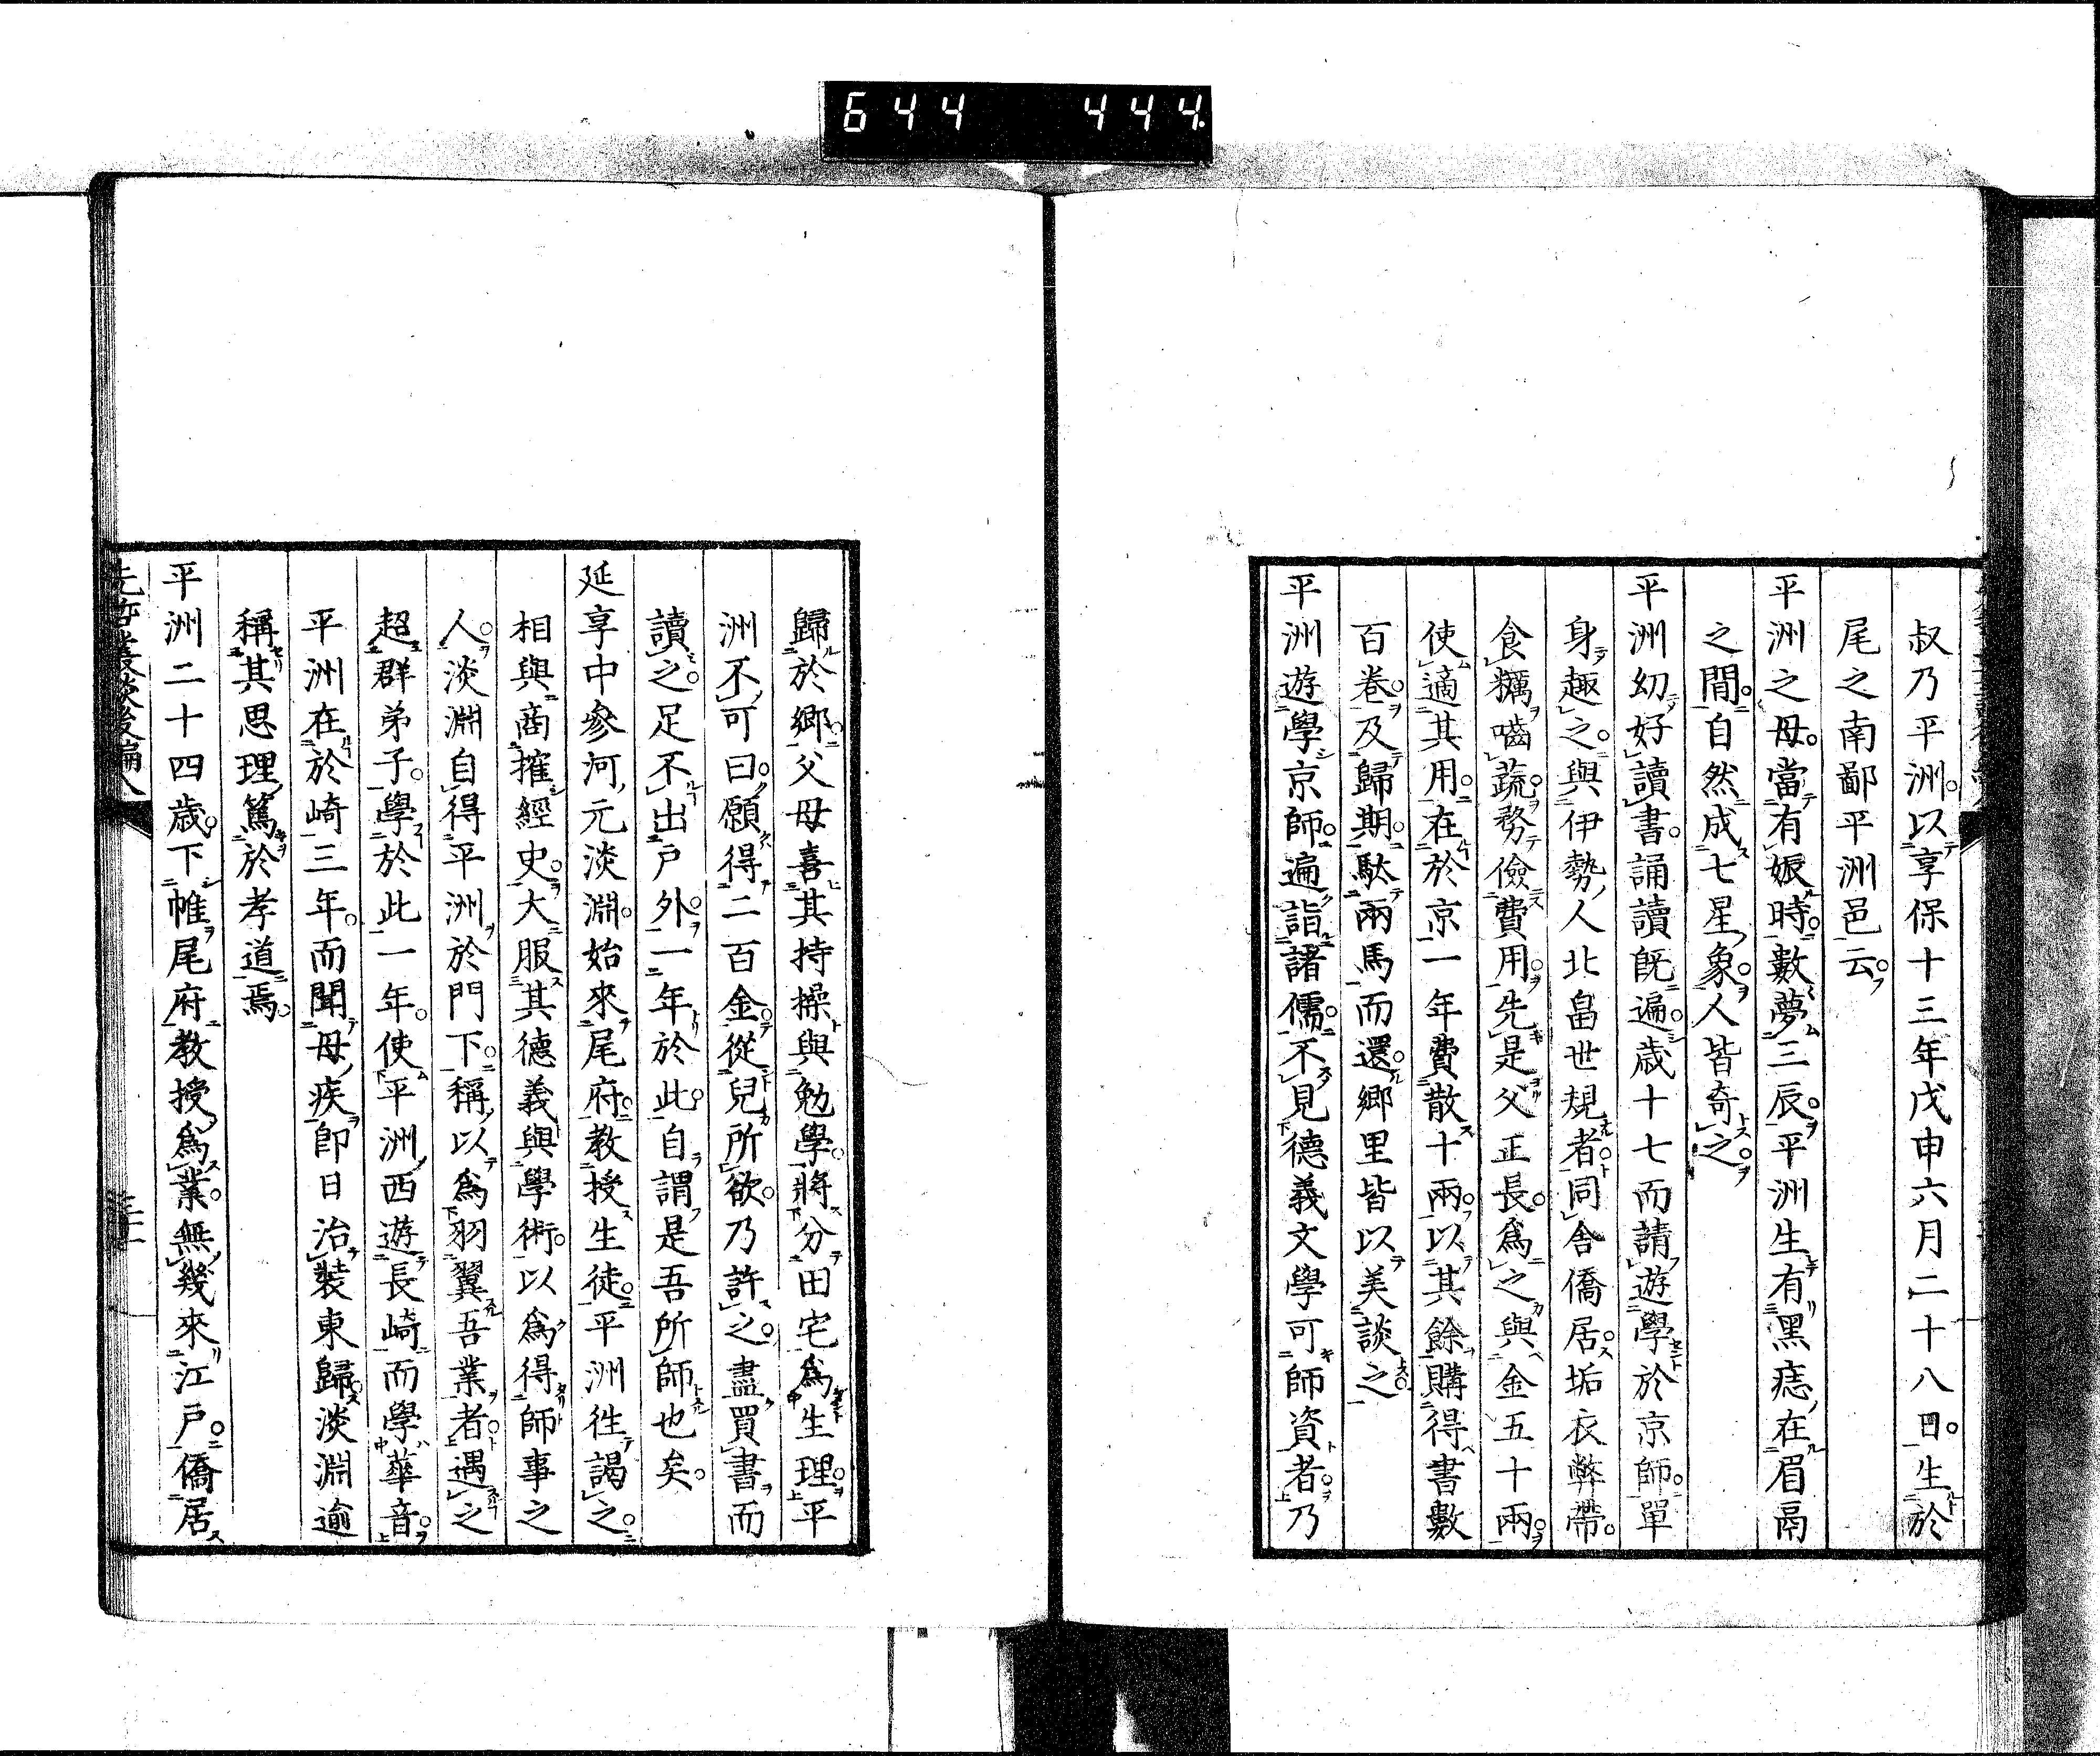 644 444
叔乃平洲以享保十三年戊申六月二十八日生於
尾之南鄙平洲邑云
平洲之母當有娠時數夢三辰平洲生有黑痣在眉鬲
之間自然成七星象人皆奇之
平洲幼好讀書誦讀既遍歲十七而請遊學於京師單
身趣之與伊勢人北畠世規者同舍僑居垢衣弊帶
食糲嚙蔬務儉費用先是父正長爲之與金五十兩
使適其用在於京一年費散十兩以其餘購得書數
百卷及歸期駄兩馬而還鄉里皆以美談之
平洲遊學京師遍詣諸儒不見德義文學可師資者乃
歸於鄉父母喜其持操與勉學將分田宅爲生理平
洲不可曰願得二百金從兒所欲乃許之盡買書而
讀之足不出戶外一年於此自謂是吾所師也矣
延享中參河元淡淵始來尾府教授生徒平洲徃謁之
相與商搉經史大服其德義與學術以爲得師事之
人淡淵自得平洲於門下稱以爲羽翼吾業者遇之
超群弟子學於此一年使平洲西遊長崎而學華音
平洲在於崎三年而聞母疾卽日治裝東歸淡淵逾
稱其思理篤於孝道焉
平洲二十四歲下帷尾府教授爲業無幾來江戶僑居
先哲叢談後編八